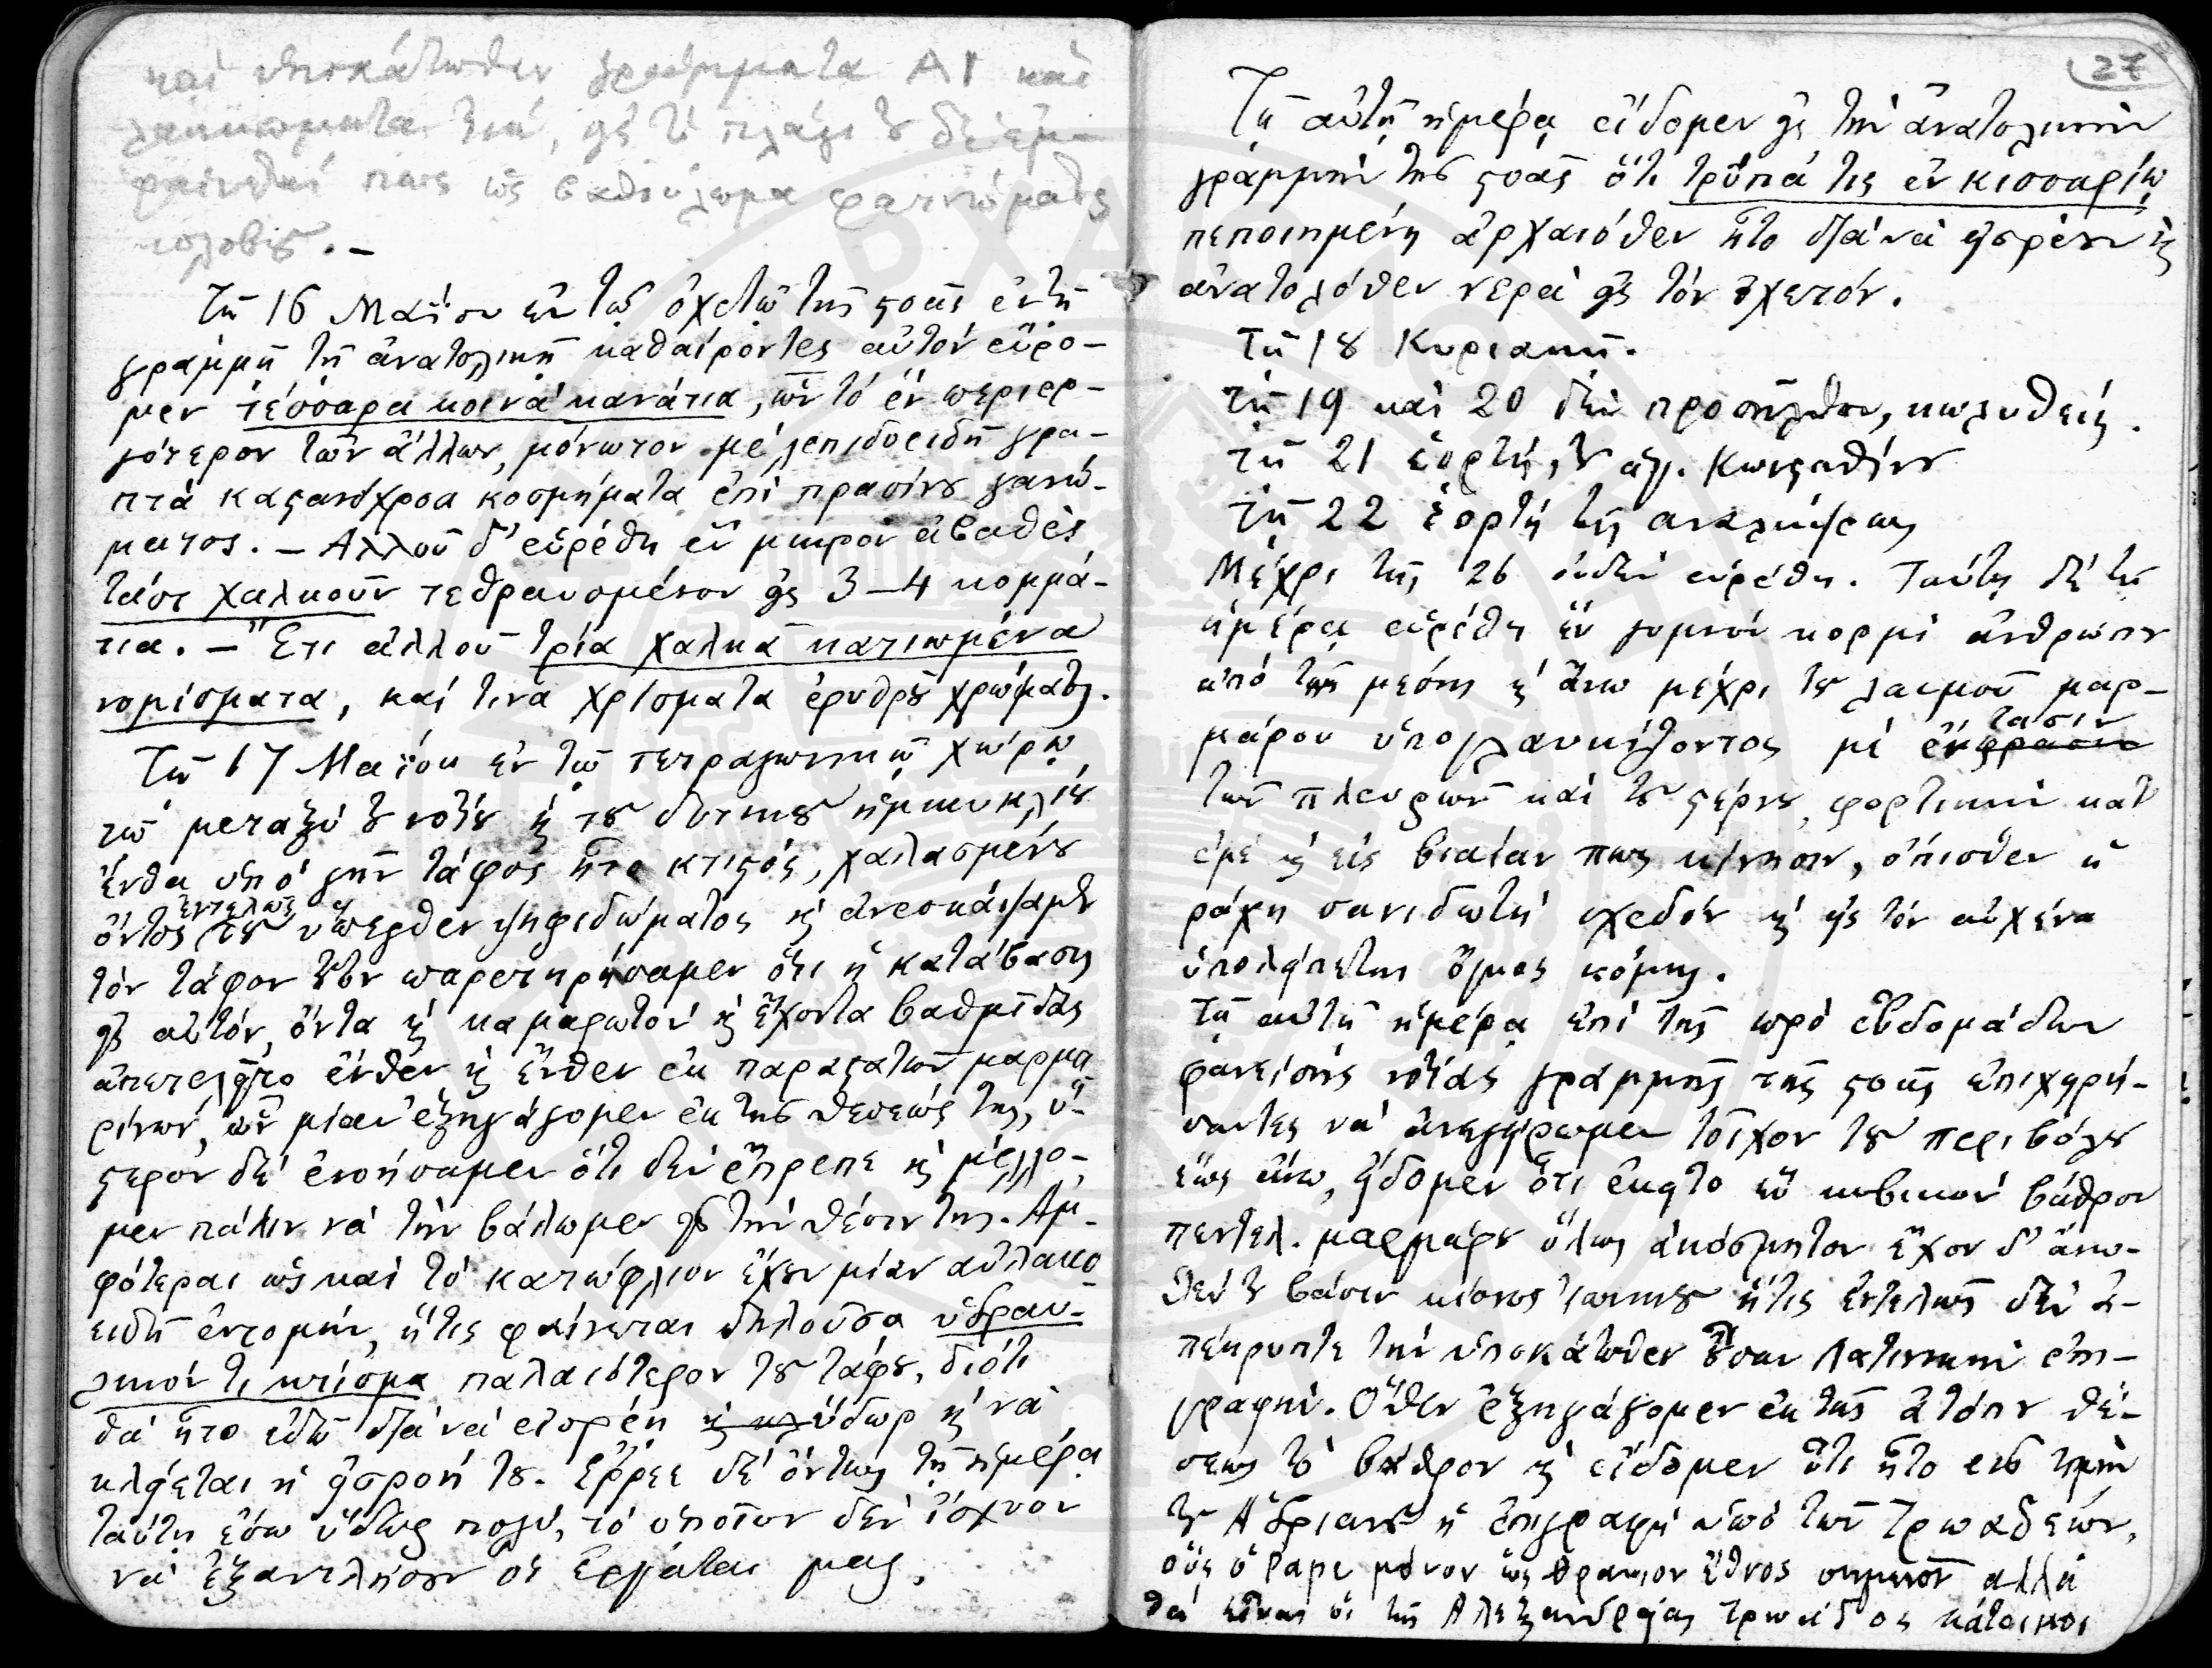 καὶ ὑποκάτωθεν γράμματα ΑΓ καὶ
λακκώματα τινά, εἰς τὸ πλάγι ȣ δὲ ἐμ-
φαίνεταί πως ὡς βαθούλωμα φατνώματος
κολοβȣ. –
Τῇ 16 Μαΐου ἐν τῷ ὀχετῷ τῆς στοᾶς ἐν τῇ
γραμμῇ τῇ ἀνατολικῇ καθαίροντες αὐτὸν εὕρο-
μεν τέσσαρα κοινὰ κανάτια, ὧν τὸ ἓν περιερ-
γότερον τῶν ἄλλων, μόνωτον μὲ λεπιδοειδῆ γρα-
πτὰ καστανόχροα κοσμήματα ἐπὶ πρασίνȣ γανώ-
ματος. – Ἀλλοῦ δ' εὑρέθη ἓν μικρὸν ἀβαθὲς
τάσι χαλκοῦν τεθραυσμένον εἰς 3–4 κομμά-
τια. – Ἔτι ἀλλοῦ τρία χαλκᾶ κατιωμένα
νομίσματα, καί τινα χρίσματα ἐρυθρȣ χρώματος.
Τῇ 17 Μαΐου ἐν τῷ τετραγωνικῷ χώρῳ
τῷ μεταξὺ τȣ νοτίȣ κ τȣ δυτικȣ ἡμικυκλίȣ
ἔνθα ὑπὸ γῆν τάφος ἦτο κτιστός, χαλασμένȣ
ὄντος ἐντελῶς τȣ ὕπερθεν ψηφιδώματος κ ἀνεσκάψαμεν
τὸν τάφον τȣτον παρετηρήσαμεν ὅτι ἡ κατάβασις
εἰς αὐτόν, ὄντα κ καμαρωτὸν κ ἔχοντα βαθμῖδας
ἀπετελεῖτο ἔνθεν κ ἔνθεν ἐκ παραστατῶν μαρμα
ρίνων, ὧν μίαν ἐξηγάγομεν ἐκ τῆς θέσεώς της, ὕ-
στερον δὲ ἐνοήσαμεν ὅτι δὲν ἔπρεπε κ μέλλο-
μεν πάλιν νὰ τὴν βάλωμεν εἰς τὴν θέσιν της. Ἀμ-
φότεραι ὡς καὶ τὸ κατώφλιον ἔχȣν μίαν αὐλακο
ειδῆ ἐντομήν, ἥτις φαίνεται δηλοῦσα ὑδραυ-
λικόν τι κτίσμα παλαιότερον τȣ τάφȣ, διότι
θὰ ἦτο ἐδῶ διὰ νὰ εἰσρέῃ ὕδωρ κ νὰ
κλείεται ἡ εἰσροή τȣ. Ἔρρεε δὲ ὄντως τῇ ἡμέρᾳ
ταύτῃ ἔσω ὕδωρ πολύ, τὸ ὁποῖον δὲν ἴσχυον
νὰ ἐξαντλήσουν οἱ ἐργάται μας.
27
Τῇ αὐτῇ ἡμέρᾳ εἴδομεν εἰς τὴν ἀνατολικὴν
γραμμὴν τῆς στοᾶς ὅτι τρῦπά τις ἐν κισσαρίῳ
πεποιημένη ἀρχαιόθεν ἦτο διὰ νὰ εἰσρέȣν κ
ἀνατολόθεν νερὰ εἰς τὸν ὀχετόν.
Τῇ 18 Κυριακῇ.
Τῇ 19 καὶ 20 δὲν προσῆλθον, κωλυθείς.
Τῇ 21 ἑορτή, τȣ ἁγ. Κωνσταντίνȣ
Τῇ 22 ἑορτὴ τῆς αναλήψεως
Μέχρι τῆς 26 οὐδὲν εὑρέθη. Ταύτῃ δὲ τῇ
ἡμέρᾳ εὑρέθη ἓν γυμνὸν κορμὶ ἀνθρώπȣ
ἀπὸ τῆς μέσης κ ἄνω μέχρι τȣ λαιμοῦ μαρ-
μάρου ὑπογλαυκίζοντος μὲ ἔκτασιν
τῶν πλευρῶν καὶ τȣ στέρνȣ, φορτικὴν κατ'
ἐμὲ κ εἰς βιαίαν πως κίνησιν, ὄπισθεν ἡ
ράχη σανιδωτὴ σχεδὸν κ εἰς τὸν αὐχένα
ὑπολείπεται ὄγκος κόμης.
Τῇ αὐτῇ ἡμέρᾳ ἐπὶ τῆς πρὸ ἑβδομάδων
φανείσης νοτίας γραμμῆς τῆς στοᾶς ἐπιχειρή-
σαντες νὰ ἀνεγείρωμεν τοῖχον τȣ περιβόλȣ
ἕως ἄνω, εἴδομεν ὅτι ἔκειτο ἓν κυβικὸν βάθρον
πεντελ. μαρμάρȣ ὅλως ἀκόσμητον ἔχον δ' ἄνω-
θέν τȣ βάσιν κίονος ἰωνικȣ ἥτις ἐντελῶς δὲν ἀ-
πέκρυπτε τὴν ὑποκάτωθεν ȣσαν Λατινικὴν ἐπι-
γραφήν. Ὅθεν ἐξηγάγομεν ἐκ τῆς ἀτόπȣ θέ-
σεως τὸ βάθρον κ εἴδομεν ὅτι ἦτο εἰς τιμὴν
τȣ Ἀδριανȣ ἡ ἐπιγραφὴ ὑπὸ τῶν Τρωαδέων,
οὓς ὁ Pape μόνον ὡς Θρᾳκιον ἔθνος σημειοῖ ἀλλὰ
θὰ εἶναι οἱ τῆς Ἀλεξανδρείας Τρωάδος κάτοικοι